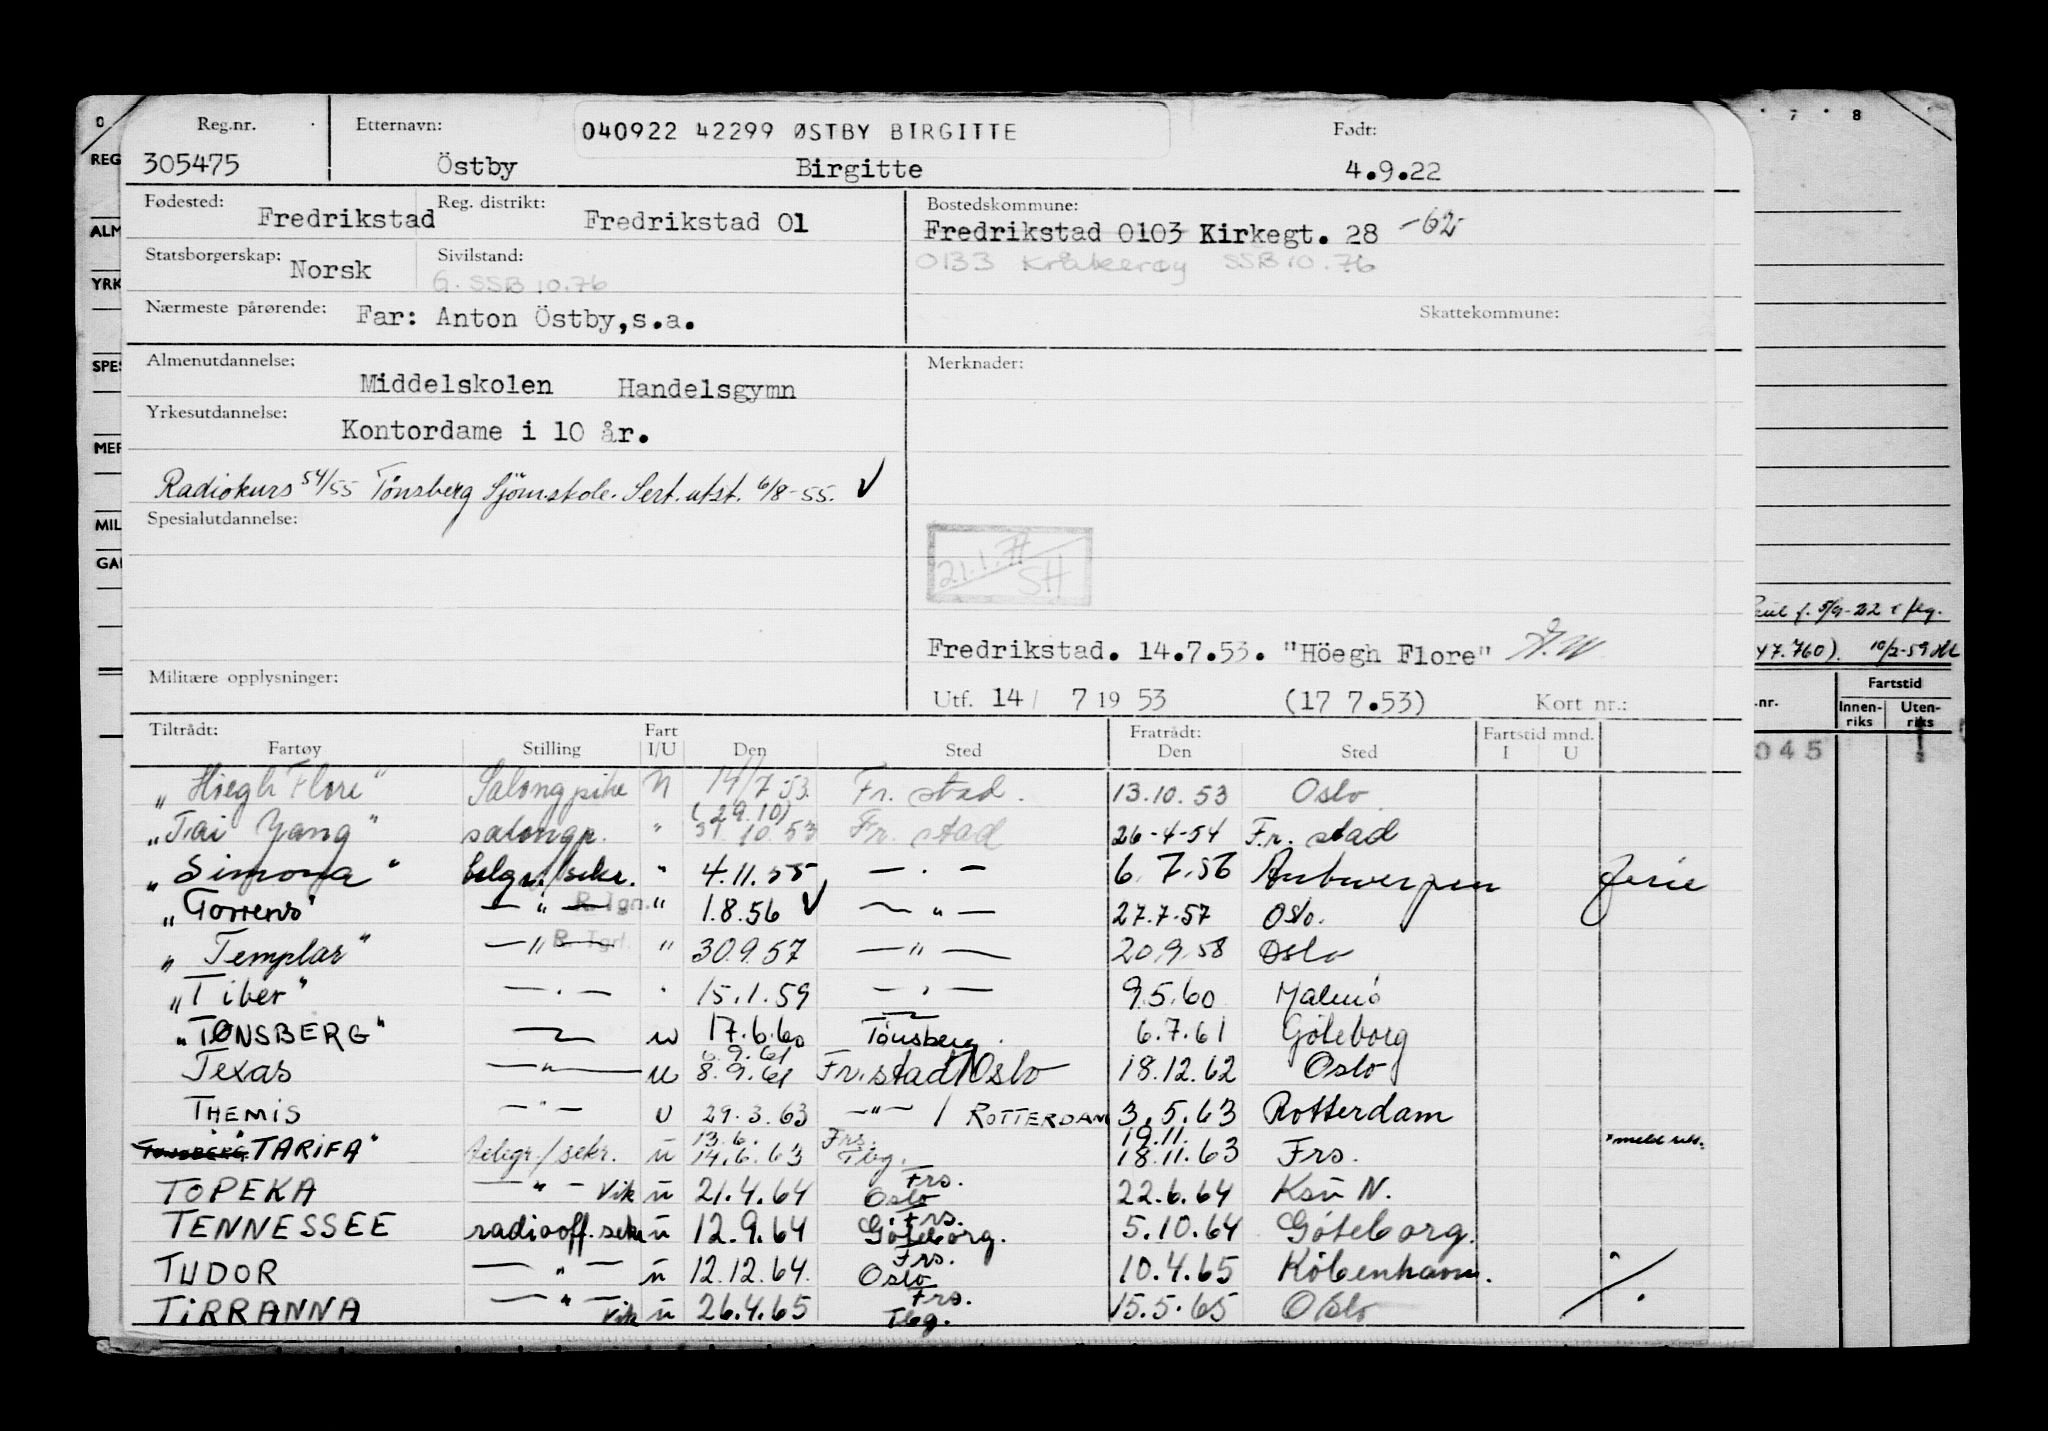 Reg.nr. Etternavn: 040922 42299 ØSTBY BIRGITTE Født:
305475 Östby Birgitte 4.9.22
Fødested: Fredrikstad Reg. distrikt: Fredrikstad 01 Bostedskommune:
Fredrikstad 0103 Kirkegt. 28 -62-
Statsborgerskap: Norsk Sivilstand: G. SSB 10.76 0133 Kråkerøy SSB 10.76
Nærmeste pårørende: Far: Anton Östby,s.a. Skattekommune:
Almenutdannelse: Middelskolen Handelsgymn Merknader:
Yrkesutdannelse: Kontordame i 10 år.
Radiokurs 54/55 Tønsberg Sjömskole. Sert. utst. 6/8-55. V
Spesialutdannelse:
21.1. SH
Fredrikstad. 14.7.53. "Höegh Flore"
Militære opplysninger:
Utf. 14/ 7 19 53 (17 7.53) Kort nr.:
Tiltrådt: Fart Fratrådt: Fartstid mnd.
Fartøy Stilling I/U Den Sted Den Sted I U
"Höegh Flore" Salongpike N 14/7.53. Fr. stad. 13.10.53 Oslo
(29.10)
"Tai Yang" salongp. " 31.10.53 Fr. stad 26-4-54 Fr. stad
"Simona" telgr./sekr. " 4.11.55 — . — 6.7.56 Antwerpen ferie
"Torrens" — " — R.Tgn. " 1.8.56 V — " — 27.7.57 Oslo.
"Templar" — " — R. Tgn. " 30.9.57 — " — 20.9.58 Oslo
"Tiber" — . — " 15.1.59 — . — 9.5.60 Malmö
"TØNSBERG" — u 17.6.60 Tönsberg. 6.7.61 Göteborg
6.9.61
Texas — " — u 8.9.61 Fr.stad/Oslo 18.12.62 Oslo
THEMIS — " — U 29.3.63 — " — / ROTTERDAM 3.5.63 Rotterdam
13.6. Frs. 19.11.
TØNSBERG "TARIFA" telegr./sekr. u 14.6.63 Tbg. 18.11.63 Frs.
Frs.
TOPEKA — " — Vik u 21.4.64 Oslo 22.6.64 Ksu N.
Frs.
TENNESSEE radiooff. sekr u 12.9.64 Göteborg. 5.10.64 Göteborg.
Frs.
TUDOR — " — u 12.12.64. Oslo 10.4.65 Köbenhavn.
Frs.
TIRRANNA — " — Vik u 26.4.65 Tbg. 15.5.65 Oslo
0
REG
ALM
YRK
SPES
MER
MIL
GA
7 8
f. 5/9-22 i
47.760). 10/2-59
.nr. Fartstid
Innen-riks Uten-riks
045